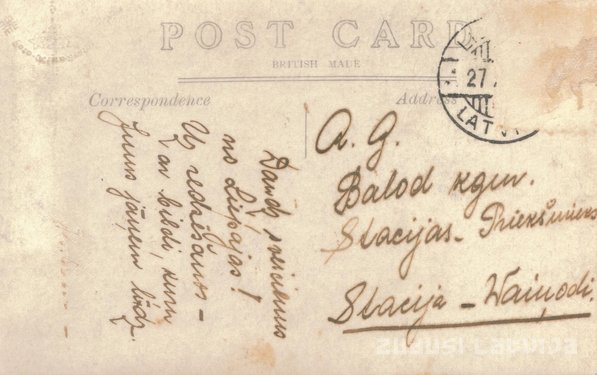 POST CARD
BRITISH MADE
Correspondence
Address
27
LATV
Daudz sveicienus
no Liepājas!
Uz redzēšanos –
ar bildi, kuru
Jums jāņem līdz.
A. G.
Balod kgm.
Stacijas – Priekšnieks
Stacija – Waiņodi.
zudusi Latvija